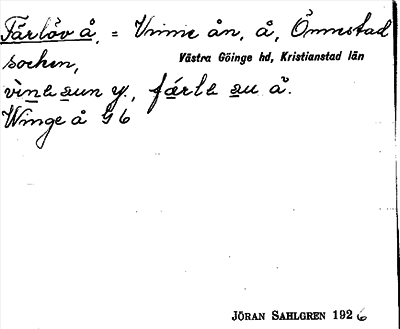 Färlöv å, = Vinne ån, å, Önnestad
socken,
Västra Göinge hd, Kristianstad län
Winge å G 6
JÖRAN SAHLGREN 1926